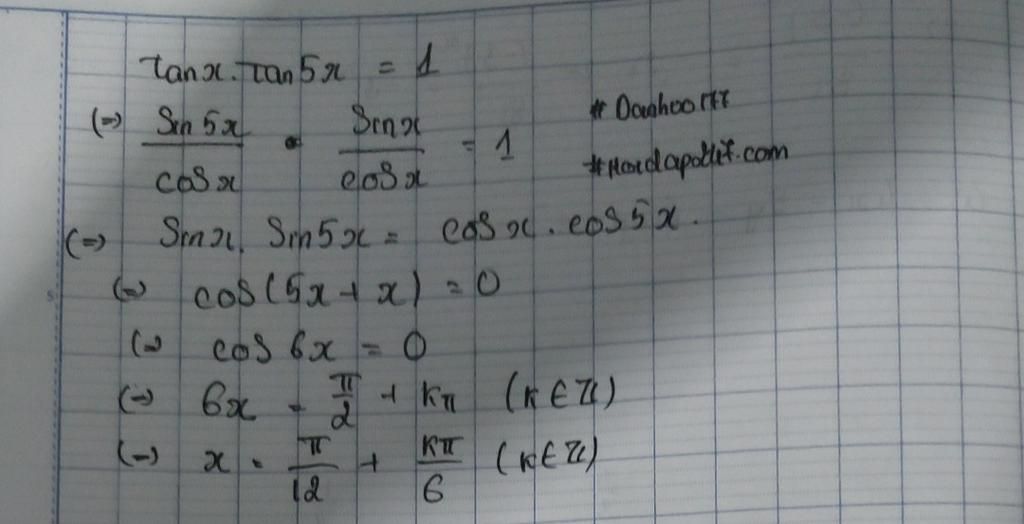 tanx.tan5x = 1
(=) Sin5x/cosx . Sinx/cosx = 1
(=) Sinx. Sin5x = cosx.cos5x.
(=) cos(5x+x) = 0
(=) cos6x = 0
(=) 6x = π/2 + kπ (k∈Z)
(=) x = π/12 + kπ/6 (k∈Z)